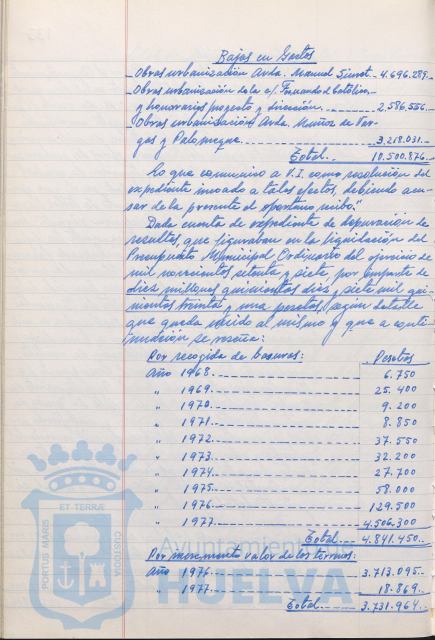 Bajas en Gastos
Obras urbanización Avda. Manuel Siurot 4.696.289.-
Obras urbanización de la c/. Fernando el Católico,
y honorarios proyecto y dirección 2.586.556.-
Obras urbanización Avda. Muñoz de Var-
gas y Palomeque 3.218.031.-
Total 10.500.876.-
Lo que comunico a V.I. como resolución del
expediente incoado a tales efectos, debiendo acu-
sar de la presente el oportuno recibo."
Dada cuenta de expediente de depuración de
resultas, que figuraban en la liquidación del
Presupuesto Municipal Ordinario del ejercicio de
mil novecientos setenta y siete, por importe de
diez millones quinientas diez y siete mil qui-
nientas treinta y una pesetas, según detalle
que queda unido al mismo y que a conti-
nuación se reseña:
Por recogida de basuras: Pesetas
Año 1968 6.750
" 1969 25.400
" 1970 9.200
" 1971 8.850
" 1972 37.550
" 1973 32.200
" 1974 27.700
" 1975 58.000
" 1976 129.500
" 1977 4.506.300
Total 4.841.450.-
Por incremento valor de los terrenos:
Año 1976 3.713.095.-
" 1977 18.869.-
Total 3.731.964.-
ET TERRÆ
PORTUS MARIS
CUSTODIA
Ayuntamiento de
HUELVA